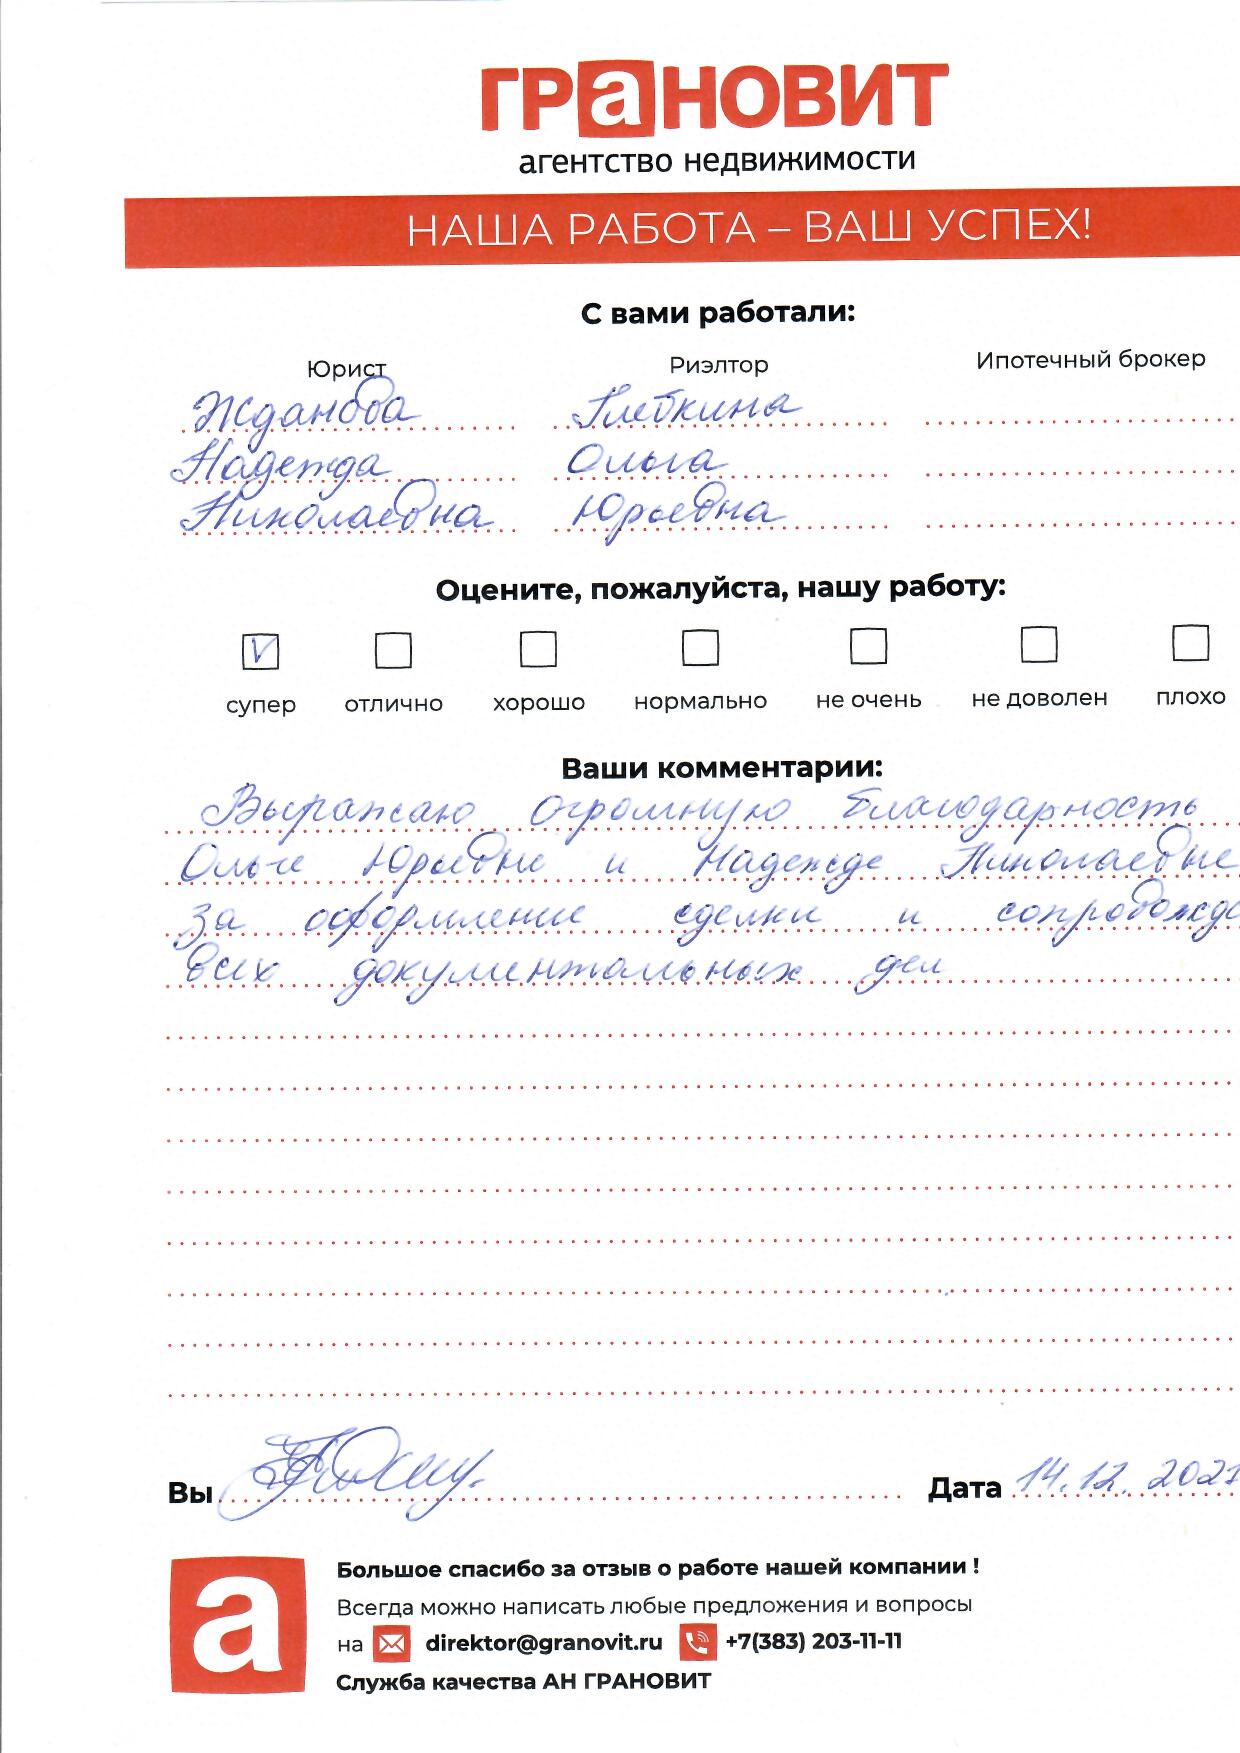 ГРаНОВИТ
агентство недвижимости
НАША РАБОТА – ВАШ УСПЕХ!
С вами работали:
Юрист Риэлтор Ипотечный брокер
Жданова Глебкина
Надежда Ольга
Николаевна Юрьевна
Оцените, пожалуйста, нашу работу:
V
супер отлично хорошо нормально не очень не доволен плохо
Ваши комментарии:
Выражаю огромную благодарность
Ольге Юрьевне и Надежде Николаевне
За оформление сделки и сопровожде
всех документальных дел
Вы Дата 14.12.2021
а Большое спасибо за отзыв о работе нашей компании !
Всегда можно написать любые предложения и вопросы
на direktor@granovit.ru +7(383) 203-11-11
Служба качества АН ГРАНОВИТ